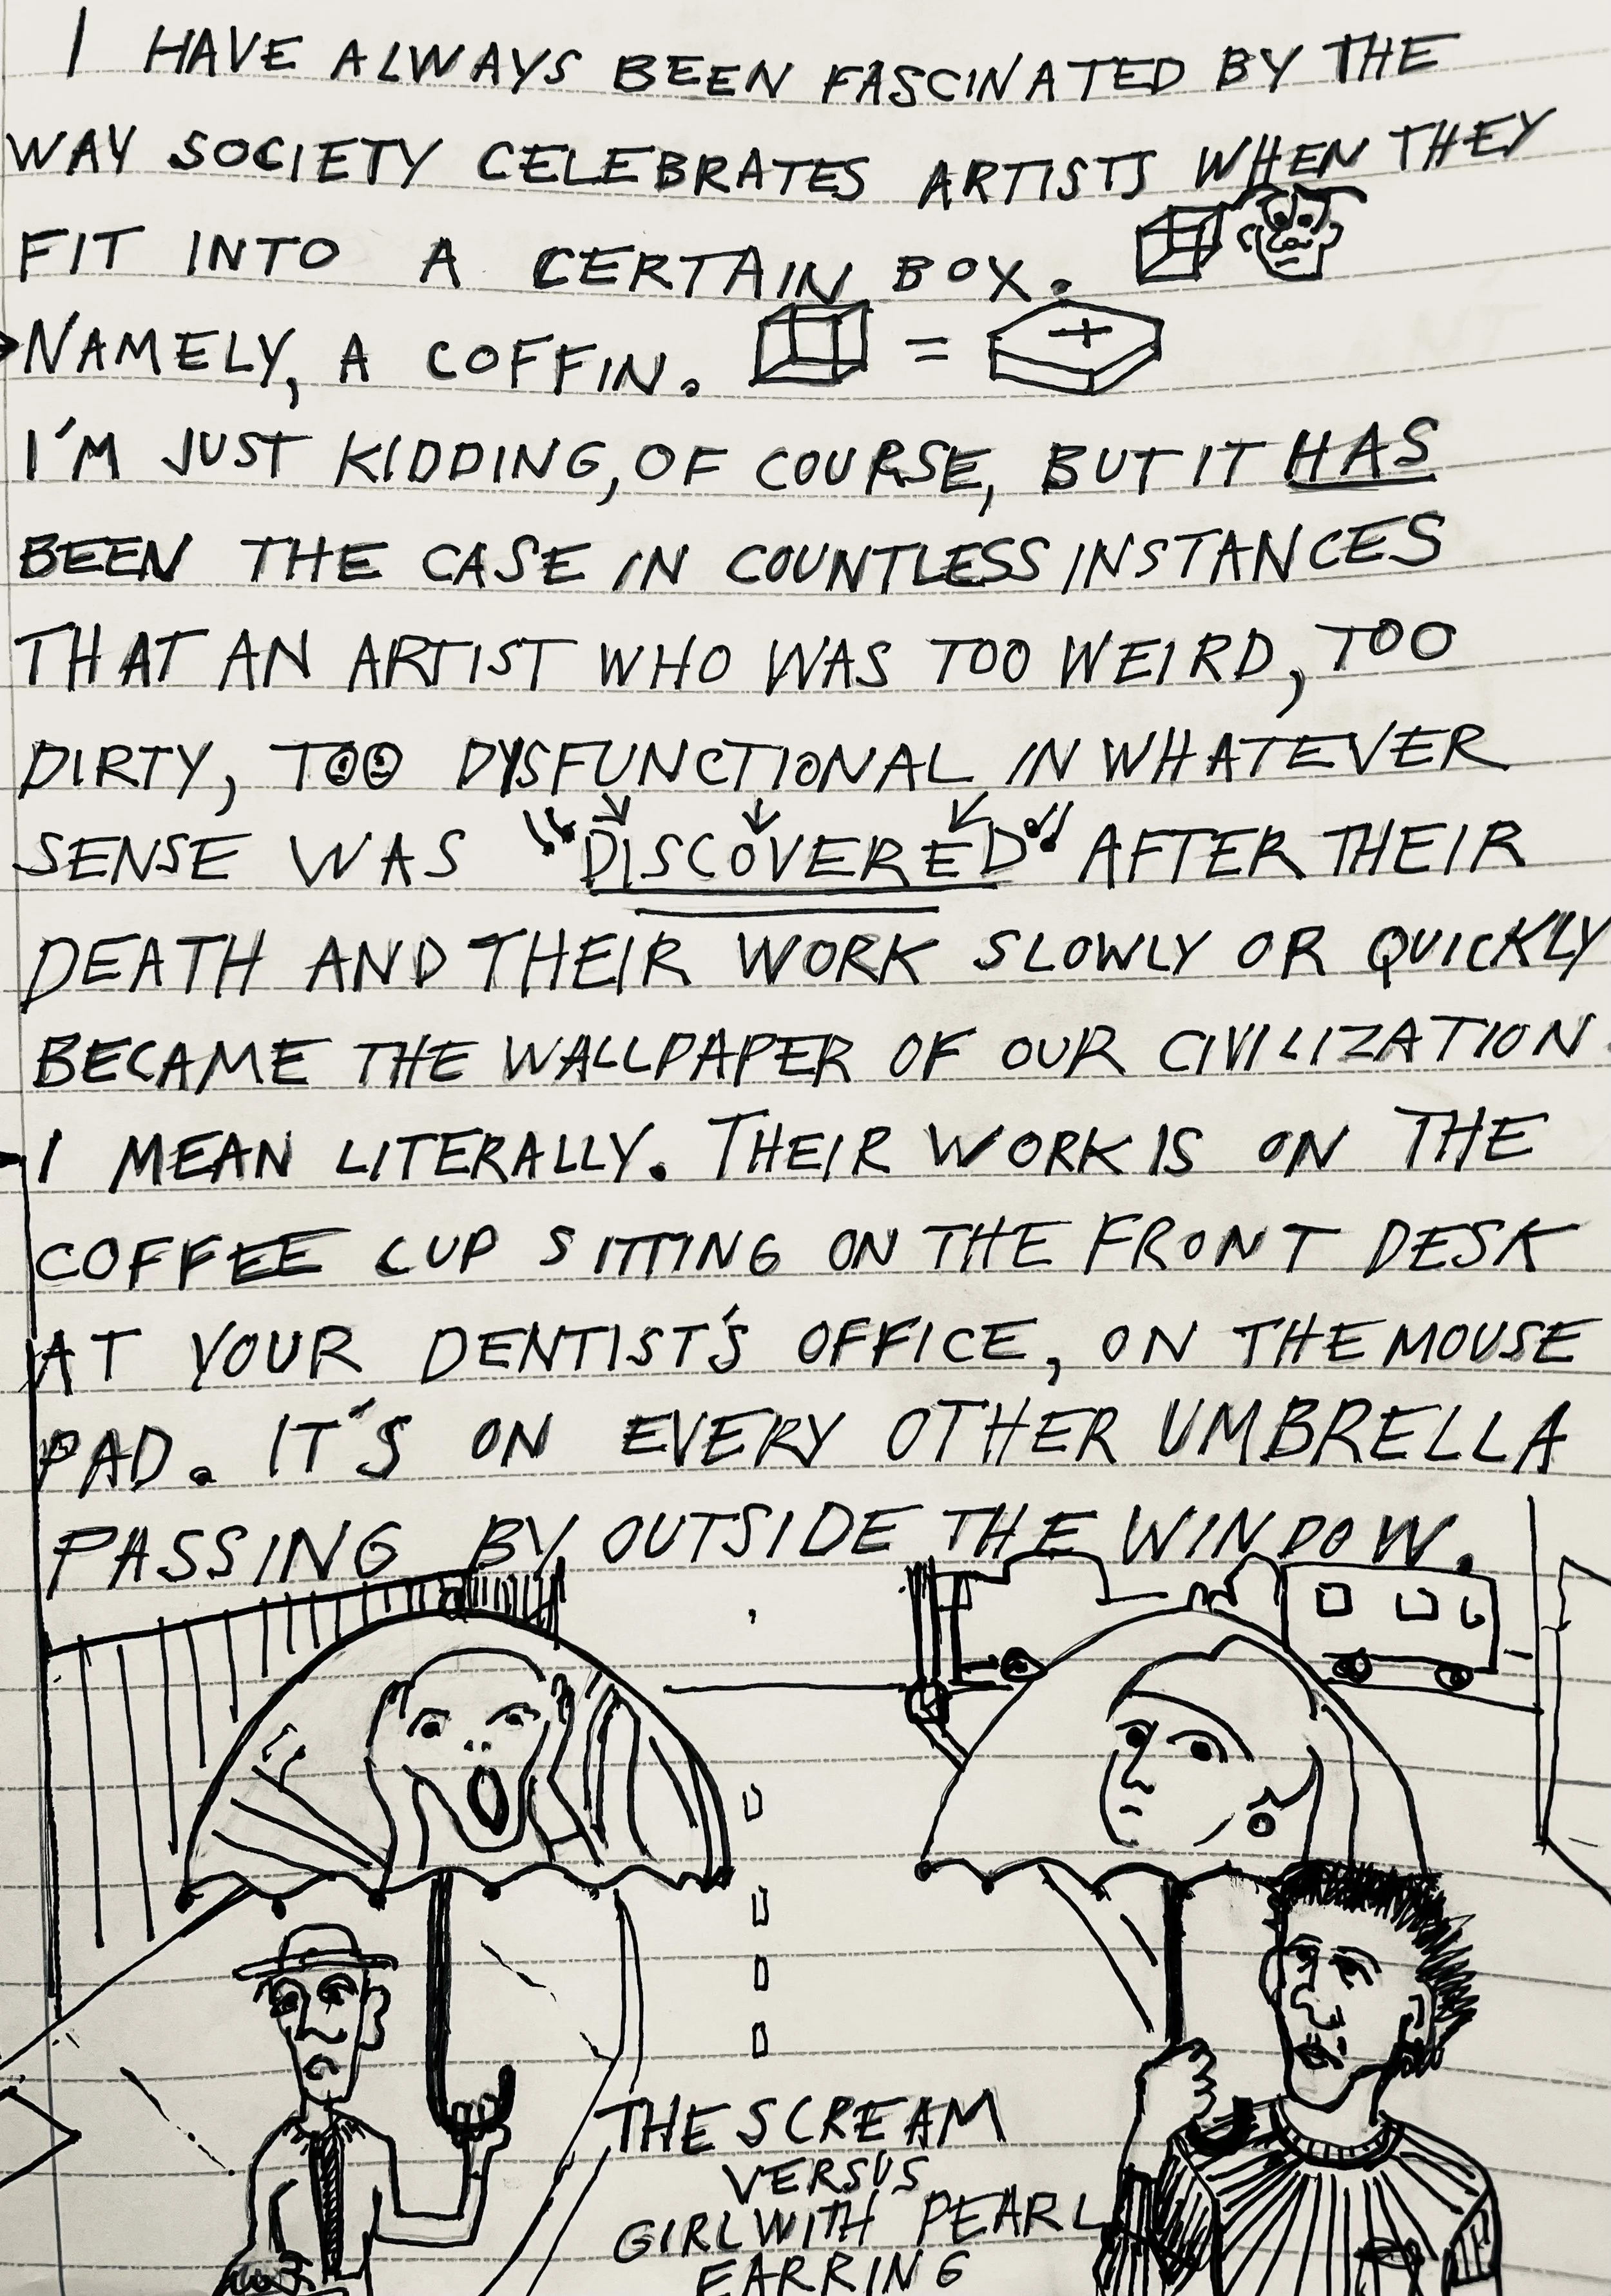 I HAVE ALWAYS BEEN FASCINATED BY THE
WAY SOCIETY CELEBRATES ARTISTS WHEN THEY
FIT INTO A CERTAIN BOX.
NAMELY, A COFFIN. =
I'M JUST KIDDING, OF COURSE, BUT IT HAS
BEEN THE CASE IN COUNTLESS INSTANCES
THAT AN ARTIST WHO WAS TOO WEIRD, TOO
DIRTY, TOO DYSFUNCTIONAL IN WHATEVER
SENSE WAS "DISCOVERED" AFTER THEIR
DEATH AND THEIR WORK SLOWLY OR QUICKLY
BECAME THE WALLPAPER OF OUR CIVILIZATION.
I MEAN LITERALLY. THEIR WORK IS ON THE
COFFEE CUP SITTING ON THE FRONT DESK
AT YOUR DENTIST'S OFFICE, ON THE MOUSE
PAD. IT'S ON EVERY OTHER UMBRELLA
PASSING BY OUTSIDE THE WINDOW.
THE SCREAM
VERSUS
GIRL WITH PEARL
EARRING